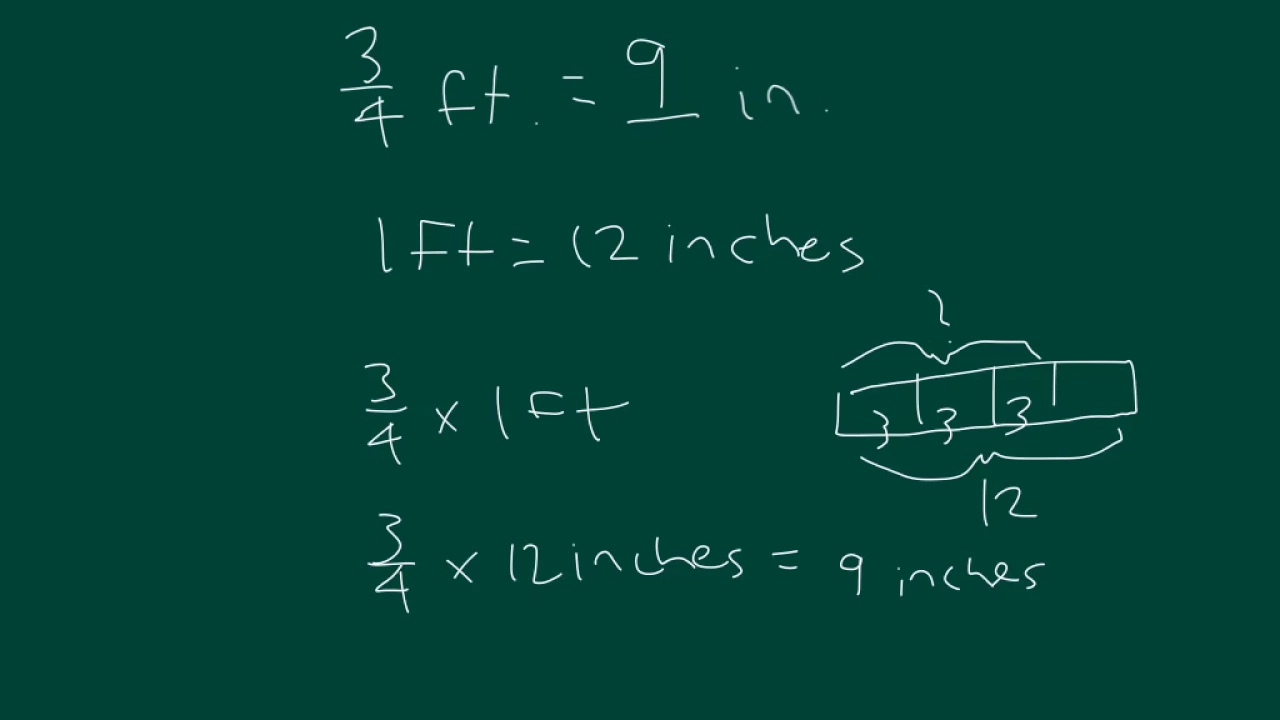 3/4 ft. = 9 in.
1 Ft = 12 inches
3/4 x 1 Ft
?
3 3 3
12
3/4 x 12 inches = 9 inches